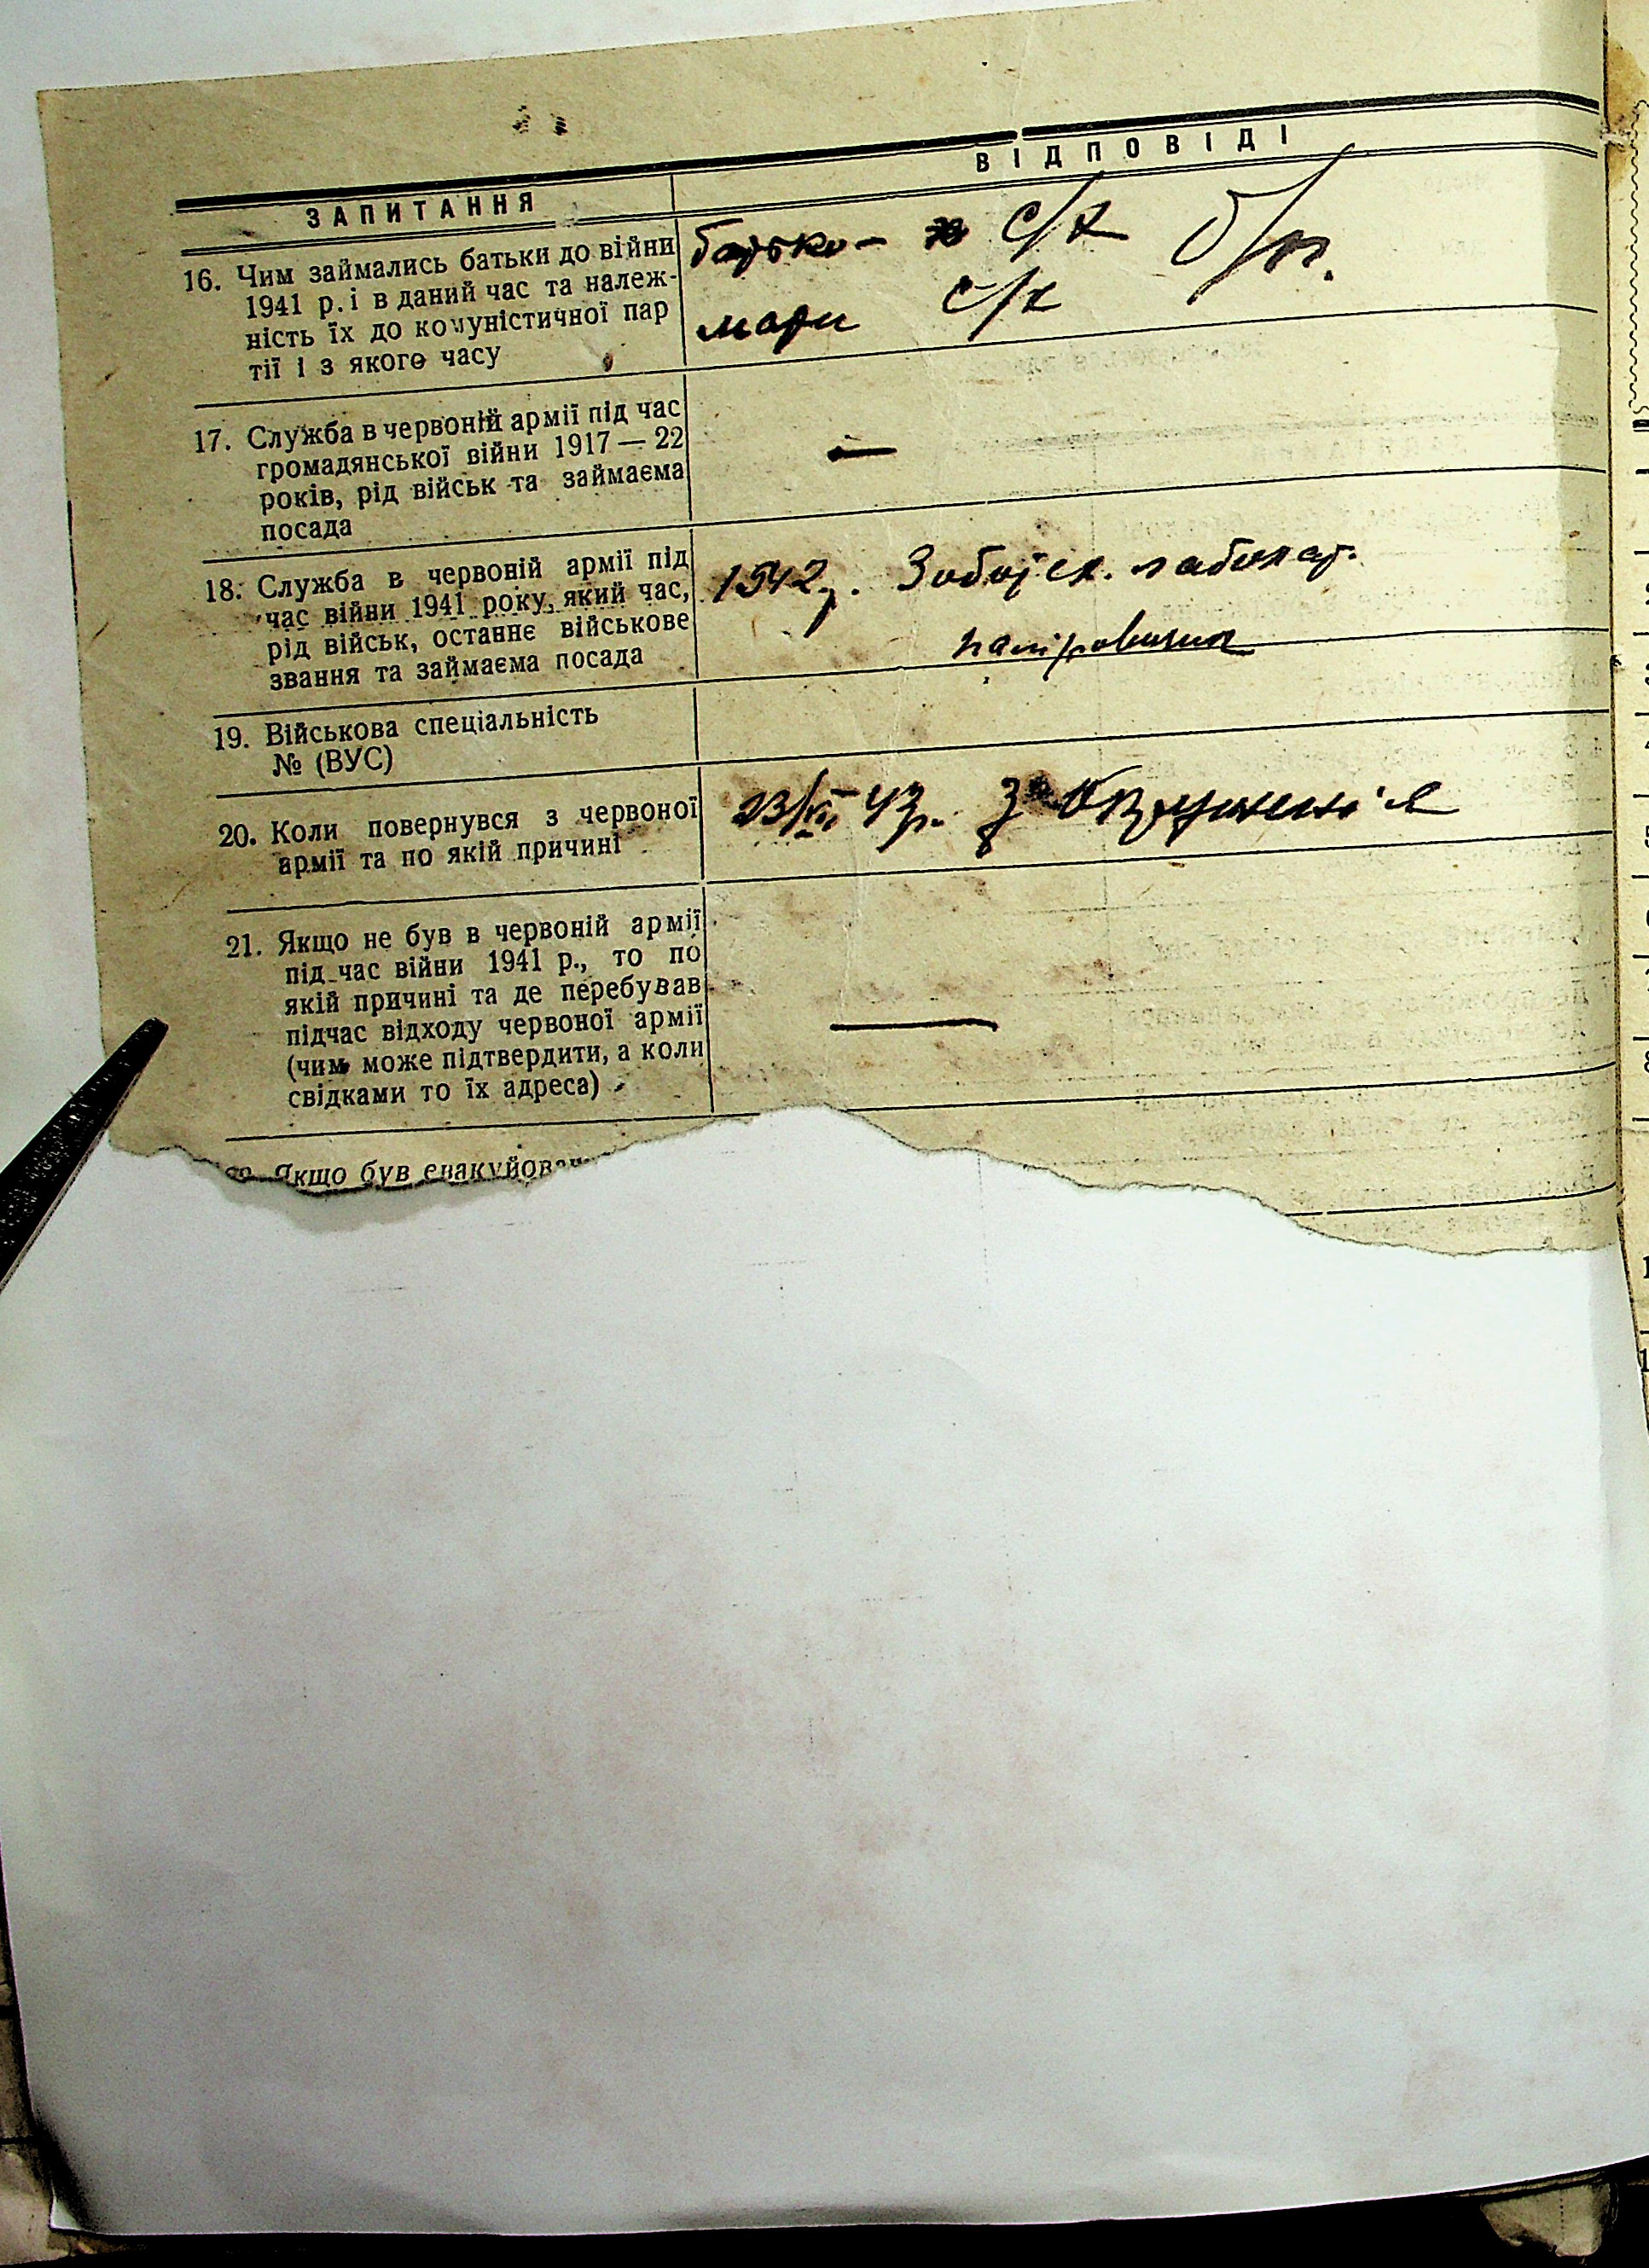 ЗАПИТАННЯ
ВІДПОВІДІ
16. Чим займались батьки до війни
1941 р. і в даний час та належ-
ність їх до комуністичної пар
тії і з якого часу
батько — с/х б/п.
мати с/х
17. Служба в червоній армії під час
громадянської війни 1917 — 22
років, рід військ та займаєма
посада
—
18. Служба в червоній армії під
час війни 1941 року, який час,
рід військ, останнє військове
звання та займаєма посада
1942 р.
19. Військова спеціальність
№ (ВУС)
20. Коли повернувся з червоної
армії та по якій причині
43 р. З
21. Якщо не був в червоній армії
під час війни 1941 р., то по
якій причині та де перебував
підчас відходу червоної армії
(чим може підтвердити, а коли
свідками то їх адреса)
—
Якщо був